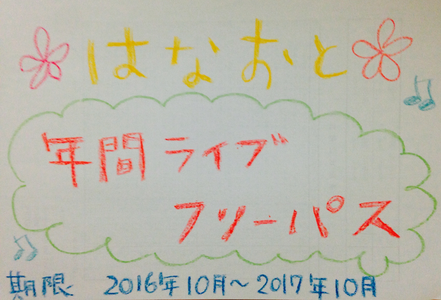 はなおと
年間ライブ
フリーパス
期限 2016年10月～2017年10月